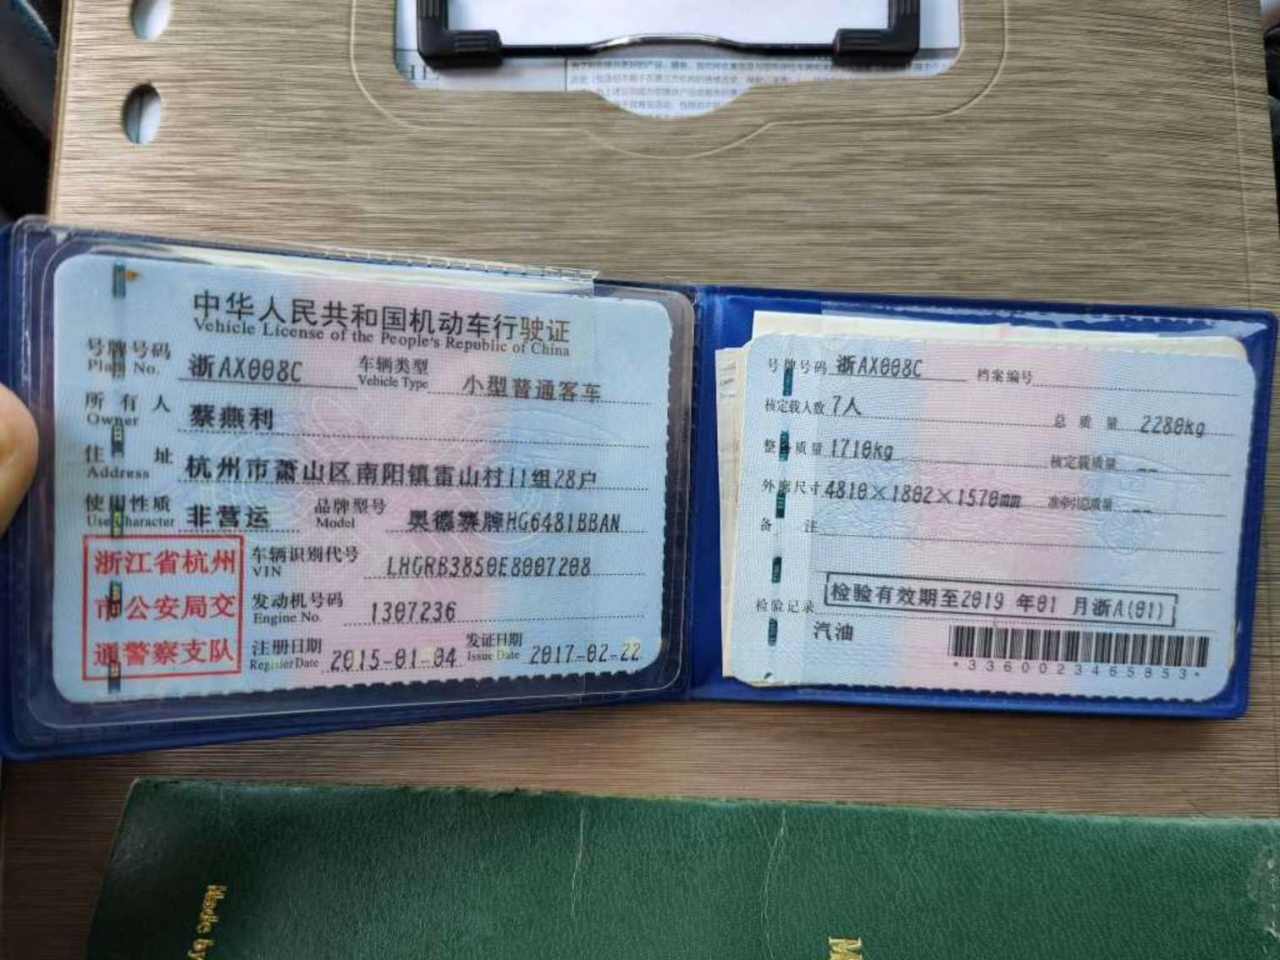 中华人民共和国机动车行驶证
Vehicle License of the People's Republic of China
号牌号码 浙AX008C 车辆类型 小型普通客车
Plate No. Vehicle Type
所有人 蔡燕利
Owner
住址 杭州市萧山区南阳镇雷山村11组28户
Address
使用性质 非营运 品牌型号 奥德赛牌HG6481BBAN
Use Character Model
浙江省杭州
市公安局交
通警察支队
车辆识别代号 LHGRB3850E8007208
VIN
发动机号码 1307236
Engine No.
注册日期 2015-01-04 发证日期 2017-02-22
Register Date Issue Date
号牌号码 浙AX008C 档案编号
核定载人数 7人 总质量 2280kg
整备质量 1710kg 核定载质量 --
外廓尺寸 4810×1802×1570mm 准牵引总质量 --
备注
检验记录 检验有效期至2019年01月浙A(01)
汽油
*3360023465853*
Made by
M